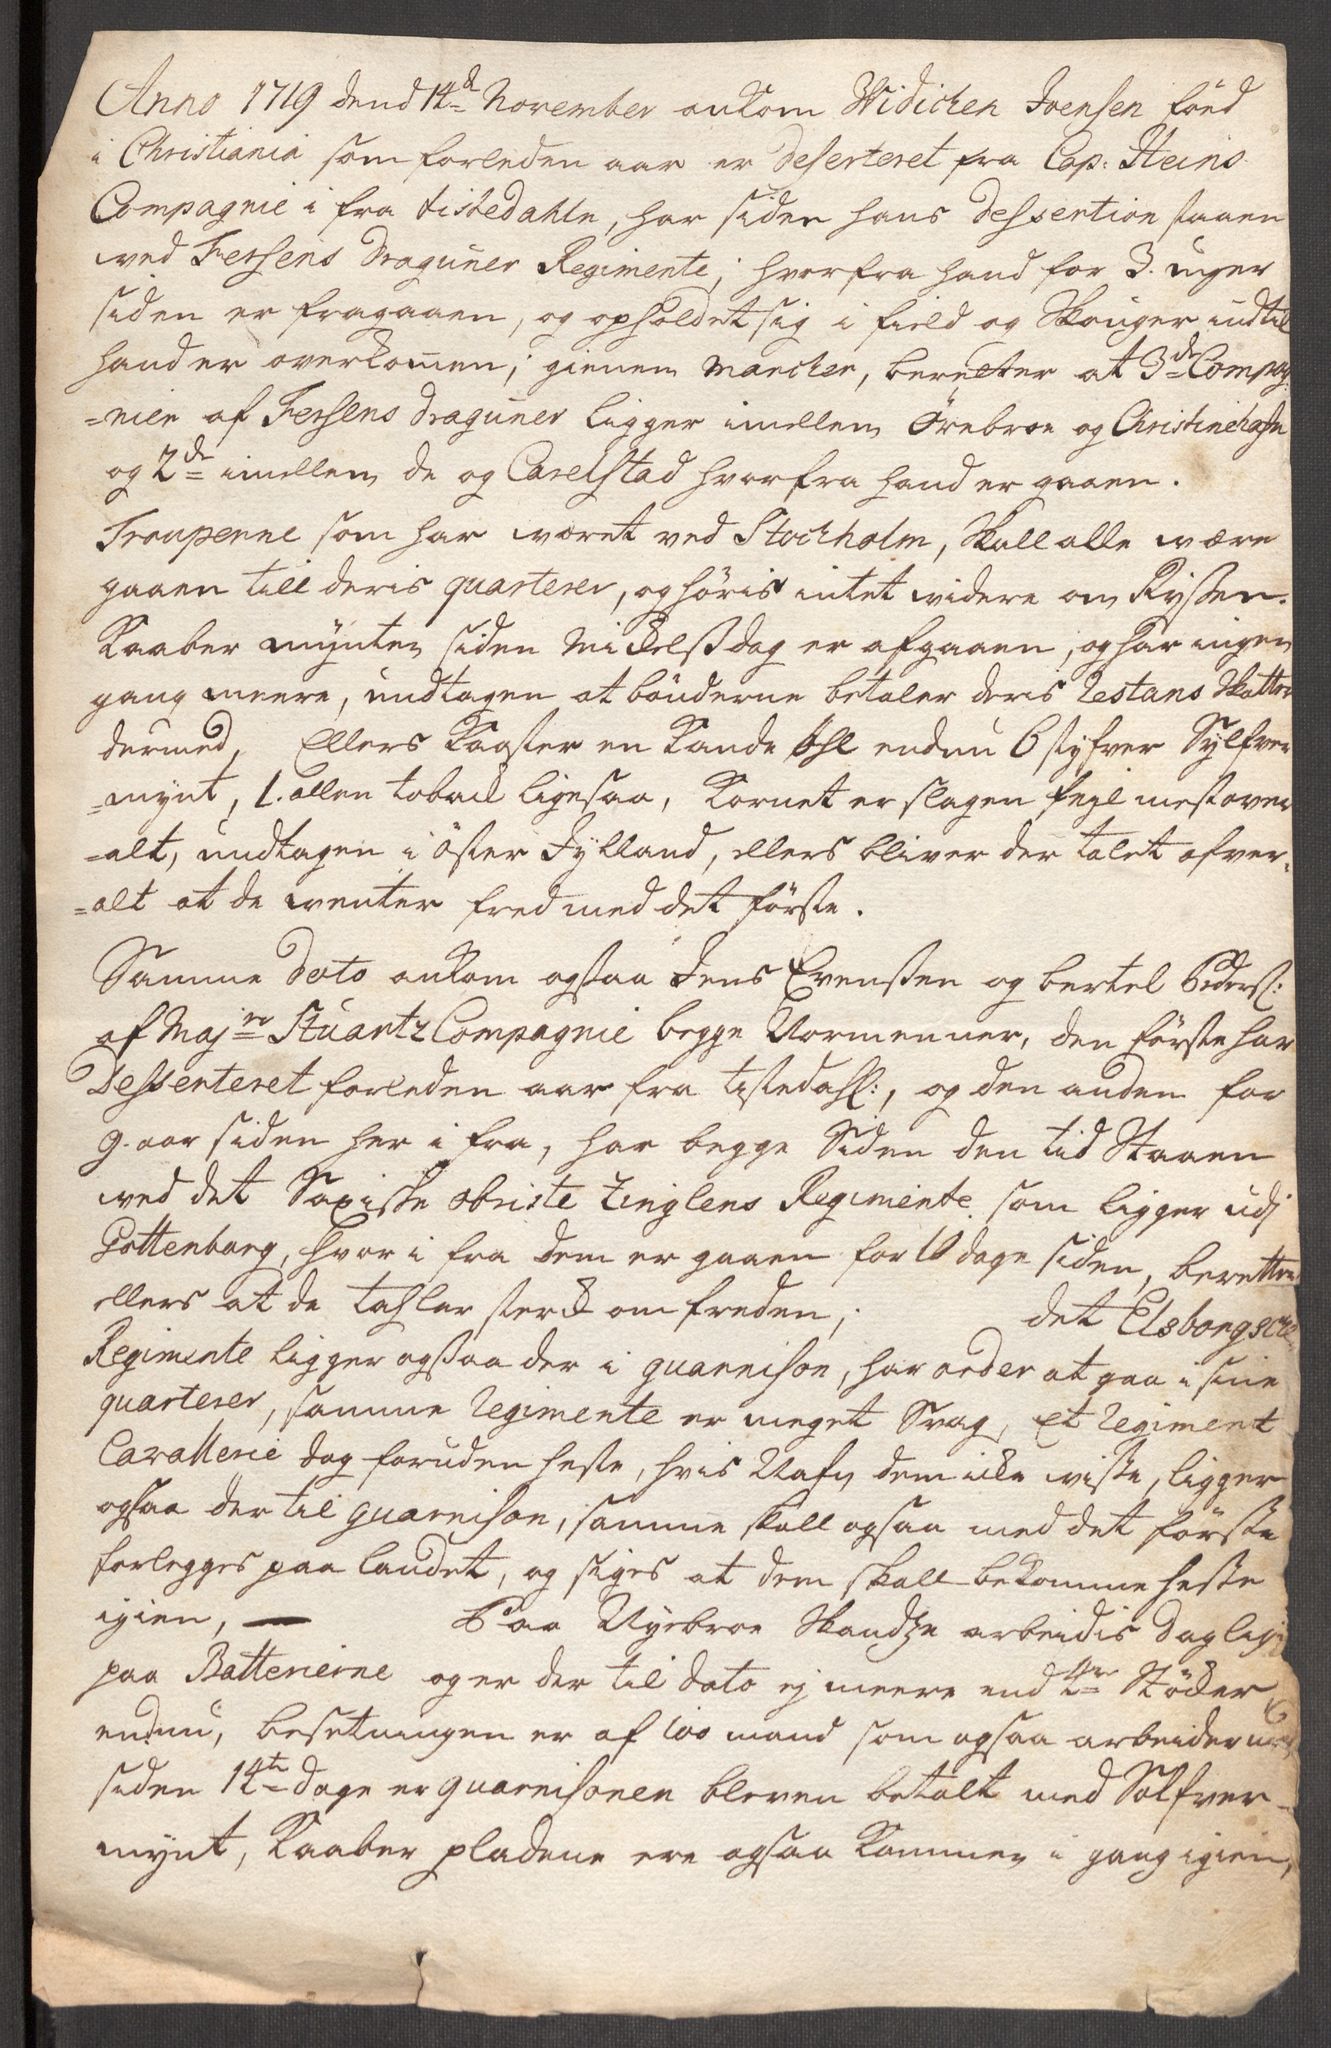 Anno 1719 dend 14d November ankom Widichen Ivensen föed
i Christiania som forleden aar er deserteret fra Cap: Steins
Compagnie i fra tistedahln, har siden hans dessertion staaen
ved Fersens Draguner Regimente, hvorfra hand for 3. uger
siden er fragaaen, og opholdet sig i field og Skouger indtil
hand er overkomen; gienem marcher, bereter at 3de Compag:
=nier af Fersens draguner ligger imellem Örebroe og Christinehafn
og 2de imellem de og Carelstad hvorfra hand er gaaen.
Troupenne som har været ved Stockholm, skall alle være
gaaen till deris quarterer, og höris intet videre om Ryssen.
Kaaber mynten siden Mickelssdag er afgaaen, og har ingen
gang meere, undtagen at bönderne betaler deris Restans Skatter
dermed, Ellers kaaster en kande öhl endnu 6 styfver Sylfver
=mynt, 1. allen toback ligesaa, Kornet er slagen fejl mest over
=alt, undtagen i öster Jylland, ellers bliver der talet afver-
=alt at de venter fred med det förste.
Samme dato ankom ogsaa Jens Evensen og bertel Peders:
af Majr Stuartz Compagnie begge Normenner, den förste har
Dessenteret forleden aar fra tistedahl:, og den anden for
9. aar siden her i fra, har begge Siden den tid Staaen
ved det Saxiske obriste Zinglens Regimente som ligger udj
Gottenborg, hvor i fra dem er gaaen for 10 dage siden, beretter
ellers at de tahler sterck om freden; det Elsborgsche
Regimente ligger ogsaa der i guarnison, har order at gaa i sine
quarterer, samme Regimente er meget Svag, Et Regiment
Cavallerie dog foruden heste, hvis Nafn dem icke viste, ligger
ogsaa der til guarnison, samme skall ogsaa med det förste
forlegges paa landet, og siges at dem skall bekomme heste
igien, — Paa Nyebroe Skandze arbeidis daglig
paa Batterierne og er der til dato ej meere end 4re Stöcker
endnu, besetningen er af 100 mand som ogsaa arbeider
siden 14te dage er guarnisonen bleven betalt med Sölfver-
mynt, Kaaber pladene ere ogsaa kommen i gang igien,